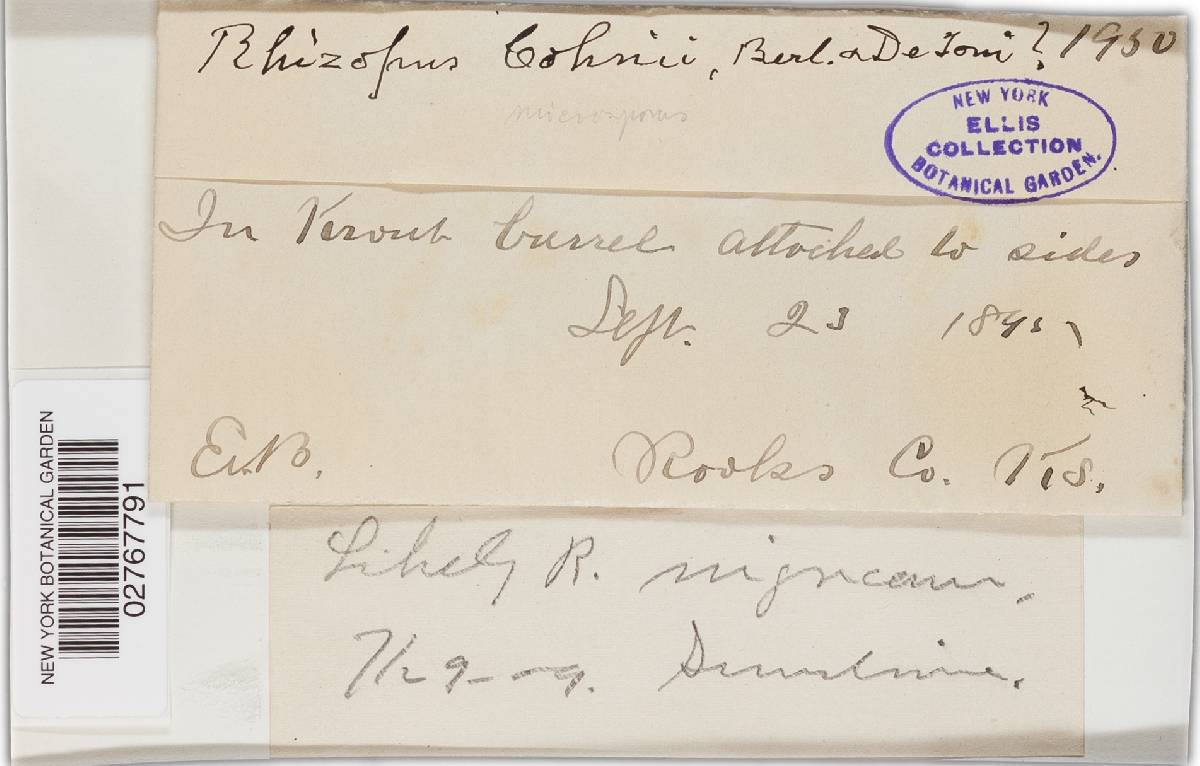 Rhizopus Cohnii, Berl. & De Toni? 1930
microsporus
NEW YORK
ELLIS
COLLECTION
BOTANICAL GARDEN.
In Krout barrel attached to sides
Sept. 23
E.B. Rooks Co. Ks.
Likely R. nigricans,
NEW YORK BOTANICAL GARDEN
02767791